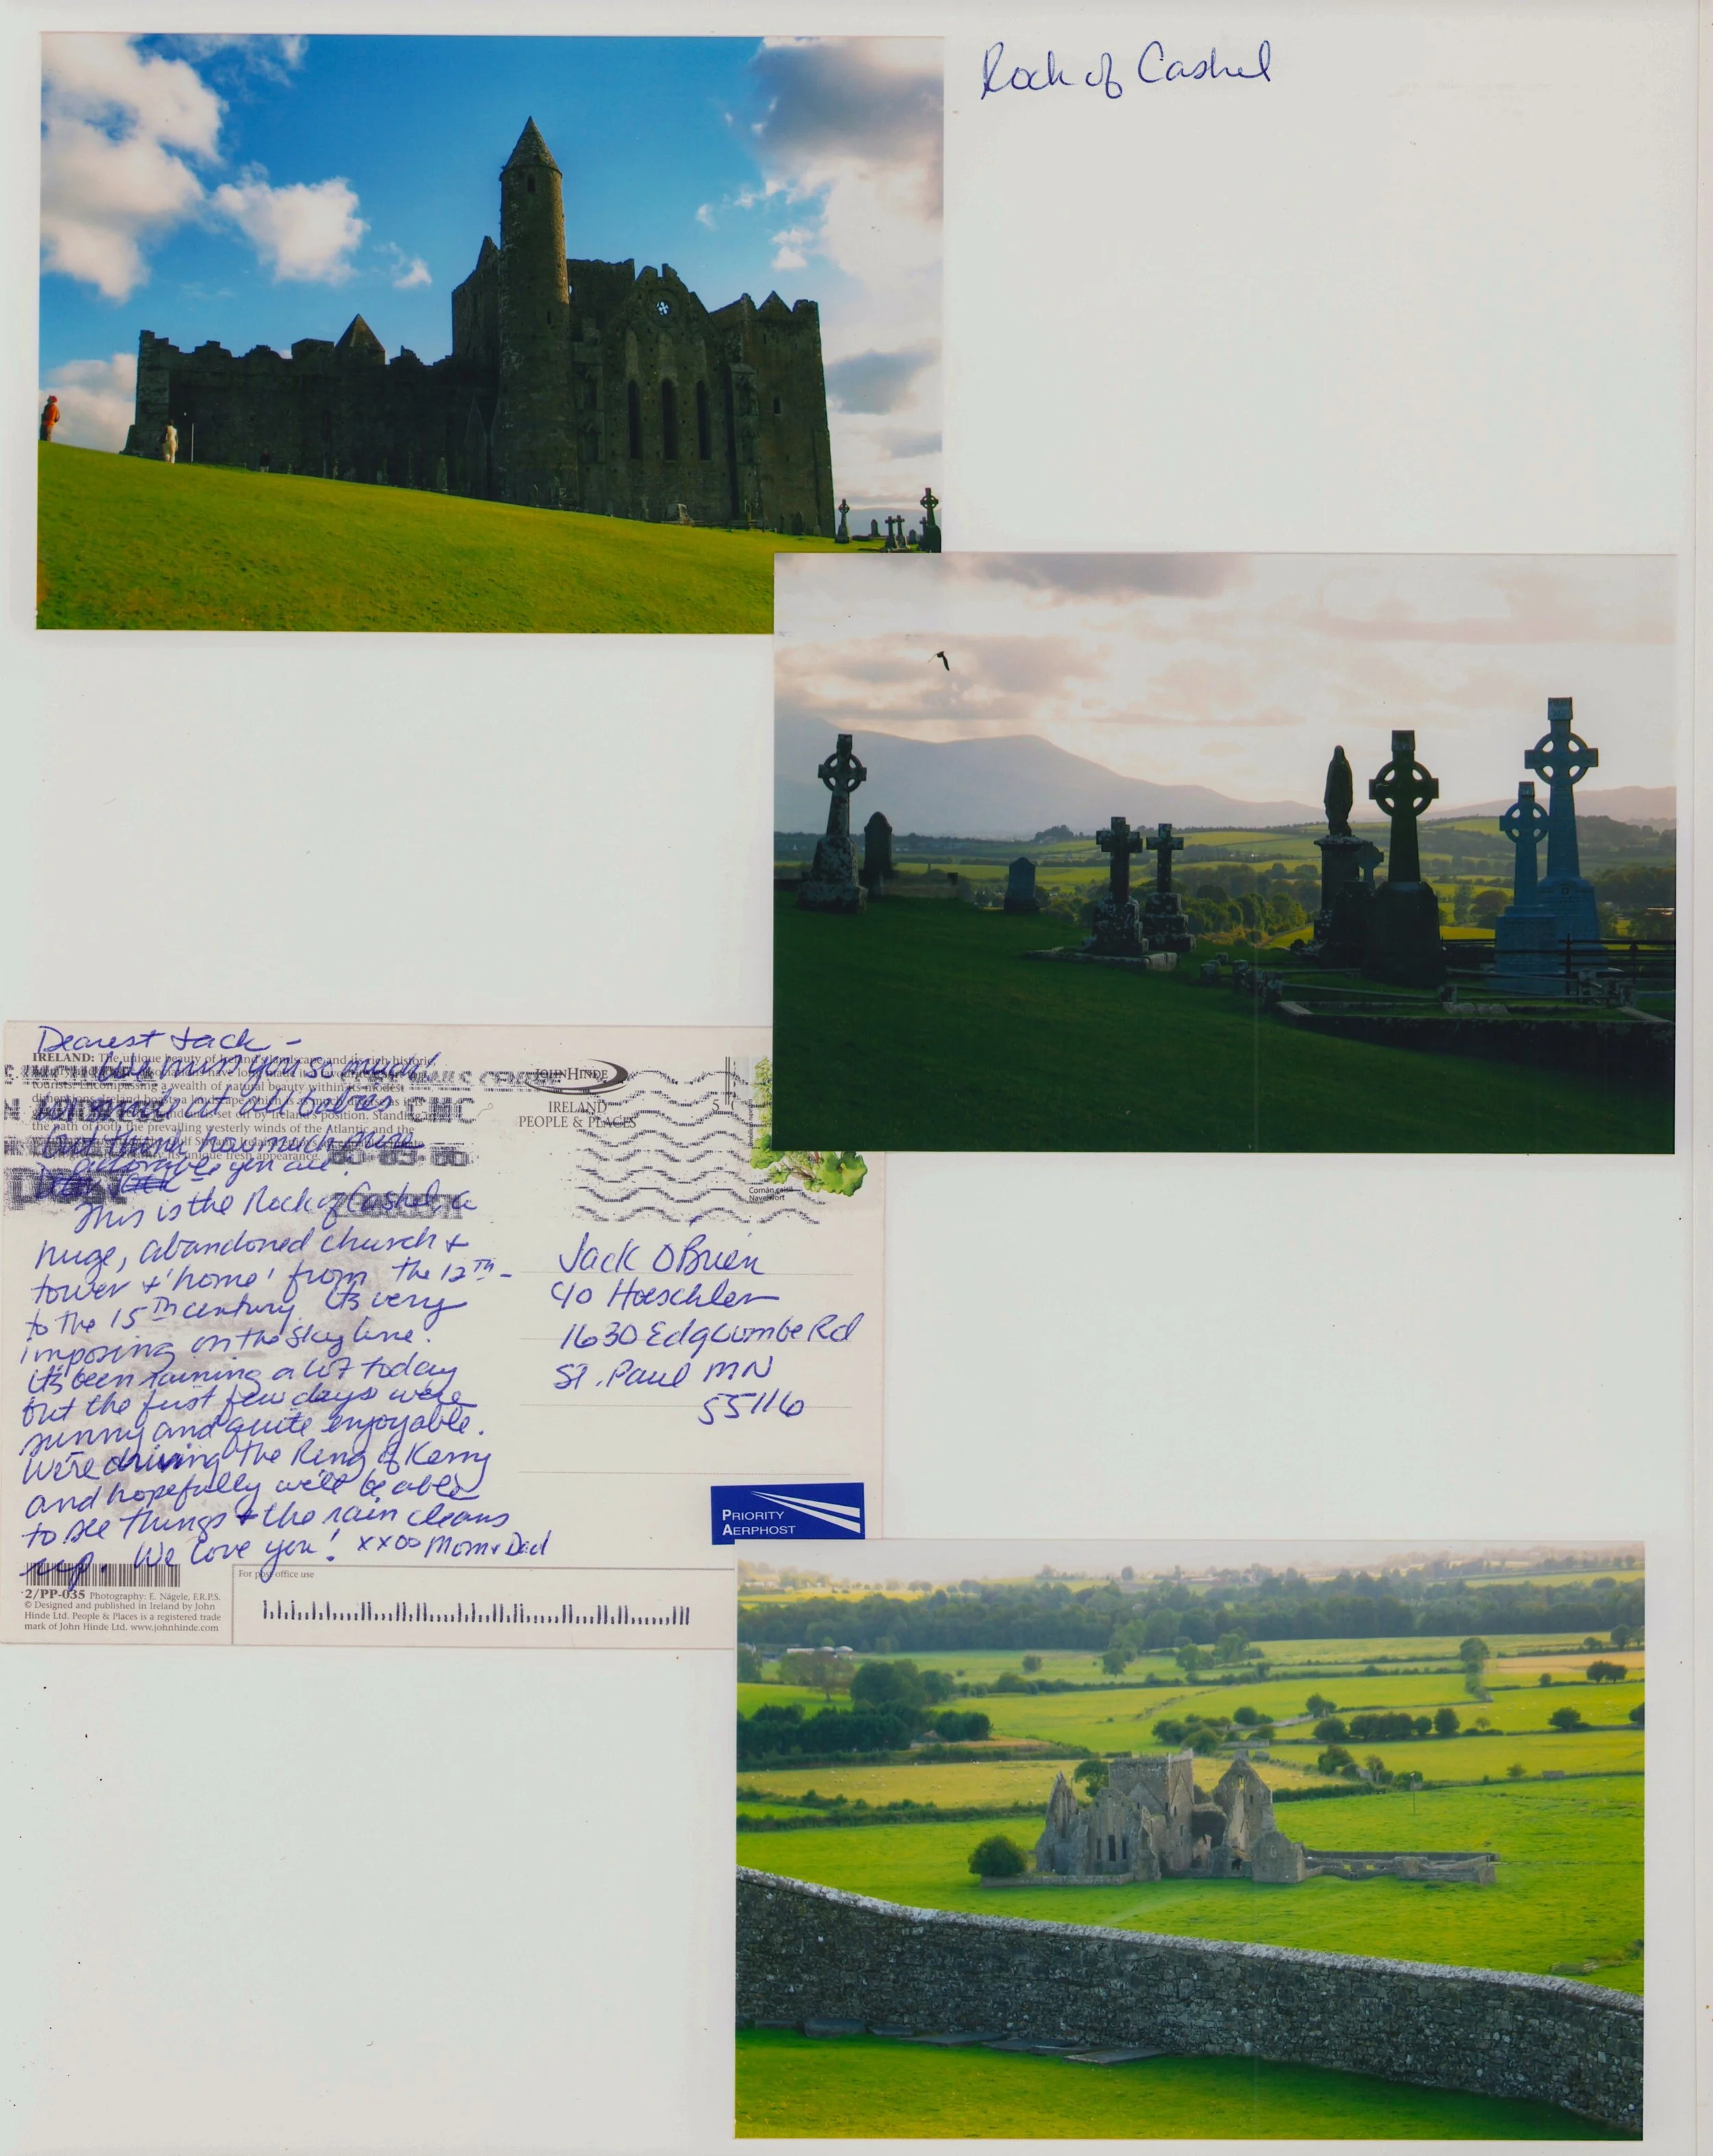 Rock of Cashel
Dearest Jack -
We miss you so much!
at all babies
but think how much more
adorable you are.
This is the Rock of Cashel, a
huge, abandoned church +
tower + 'home' from the 12th -
to the 15th century. Its very
imposing on the sky line.
It's been raining a lot today
but the first few days were
sunny and quite enjoyable.
We're driving the Ring of Kerry
and hopefully we'll be able
to see things + the rain clears
up. We love you! xxoo Mom + Dad
IRELAND: The unique beauty of Ireland's landscape and its rich historic
tourists. Encompassing a wealth of natural beauty within its modest
set off by Ireland's position. Standing
the path of both the prevailing westerly winds of the Atlantic and the
its unique fresh appearance.
CMC
JOHN HINDE
IRELAND
PEOPLE & PLACES
Comán caisil
Navelwort
Jack O'Brien
c/o Hoeschler
1630 Edgcumbe Rd
St. Paul MN
55116
PRIORITY
AERPHOST
2/PP-035 Photography: E. Nägele, F.R.P.S.
© Designed and published in Ireland by John
Hinde Ltd. People & Places is a registered trade
mark of John Hinde Ltd. www.johnhinde.com
For post office use